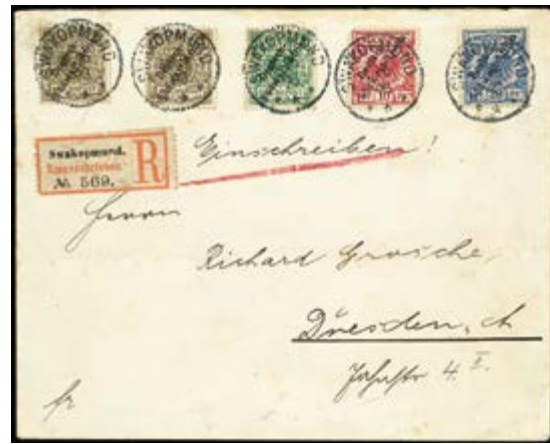 SWAKOPMUND SWAKOPMUND SWAKOPMUND SWAKOPMUND SWAKOPMUND
Swakopmund.
Eingeschrieben.
№ 569.
R
Einschreiben!
Herrn
Richard Grosche,
Dresden, A
4 I.
fr